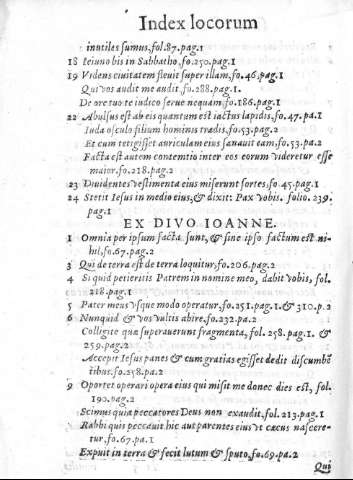 Index locorum
inutiles sumus, fol.87.pag.1
18 Ieiuno bis in Sabbatho, fo.250.pag.1
19 Videns ciuitatem fleuit super illam, fo.46.pag.1
Qui vos audit me audit. fo.288.pag.1.
De ore tuo te iudico serue nequam, fo.186.pag.1
22 Abulsus est ab eis quantum est iactus lapidis, fo.47.pa.1
Iuda osculo filium hominis tradis, fo.53.pag.2
Et cum tetigisset auriculam eius sanauit eam, fo.53.pa.2
Facta est autem contemtio inter eos eorum videretur esse
maior, fo.218.pag.2
23 Diuidentes vestimenta eius miserunt sortes, fo.45.pag.1
24 Stetit Iesus in medio eius, & dixit: Pax vobis. folio. 239.
pag.1
EX DIVO IOANNE.
1 Omnia per ipsum facta sunt, & sine ipso factum est ni-
hil, fo.67.pag.2
3 Qui de terra est de terra loquitur, fo.206.pag.2
4 Si quid petieritis Patrem in nomine meo, dabit vobis, fol.
218.pag.1
5 Pater meus vsque modo operatur, fo.251.pag.1.& 310.p.2
6 Nunquid & vos vultis abire, fo.232.pa.2
Colligite quæ superauerunt fragmenta, fol.258.pag.1. &
259.pag.2
Accepit Iesus panes & cum gratias egisset dedit discumbē
tibus. fo.258.pa.2
9 Oportet operari opera eius qui misit me donec dies est, fol.
190.pag.2
Scimus quia peccatores Deus non exaudit, fol.213.pag.1
Rabbi quis peccauit hic aut parentes eius vt cæcus nascere-
tur, fo.67.pa.1
Expuit in terra & fecit lutum & sputo, fo.69.pa.2
Qui